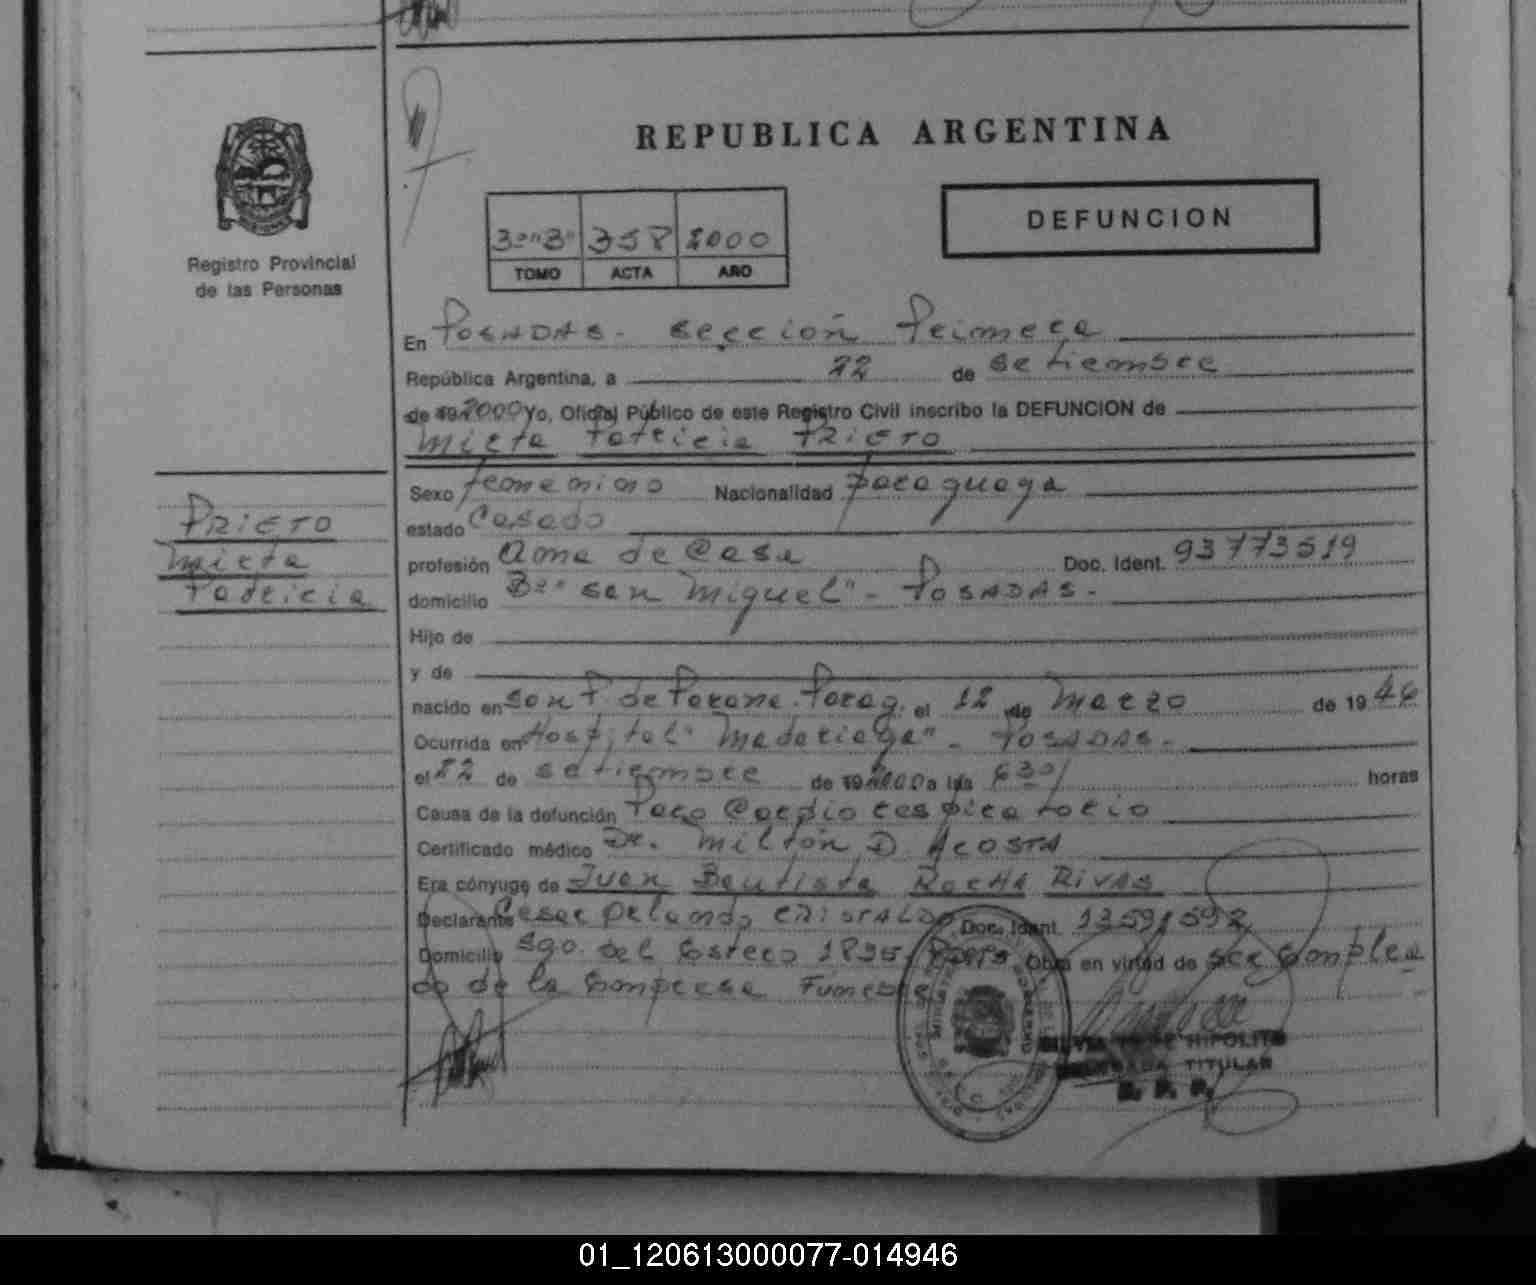 REPUBLICA ARGENTINA
DEFUNCION
3º "B" 358 2000
TOMO ACTA AÑO
Registro Provincial
de las Personas
En POSADAS - sección Primera
República Argentina, a 22 de setiembre
de 19 2000 Yo, Oficial Público de este Registro Civil inscribo la DEFUNCION de
Mirta Patricia PRIETO
PRIETO
Mirta
Patricia
Sexo femenino Nacionalidad paraguaya
estado Casado
profesión Ama de Casa Doc. Ident. 93773519
domicilio Bº "San Miguel" - POSADAS -
Hijo de
y de
nacido en San P. de Parana. Parag. el 12 de Marzo de 19 46
Ocurrida en Hospital "Madariaga" - POSADAS -
el 22 de setiembre de 19 2000 a las 630/ horas
Causa de la defunción Paro Cardio respiratorio
Certificado médico Dr. Milton D. ACOSTA
Era cónyuge de Juan Bautista ROCHA RIVAS
Declarante Cesar Orlando Doc. Ident. 13591592
Domicilio Sgo. del Estero 1895 Obra en virtud de ser Emplea
do de la Empresa Funebre
HIPOLITO
TITULAR
R. P. P.
01_120613000077-014946